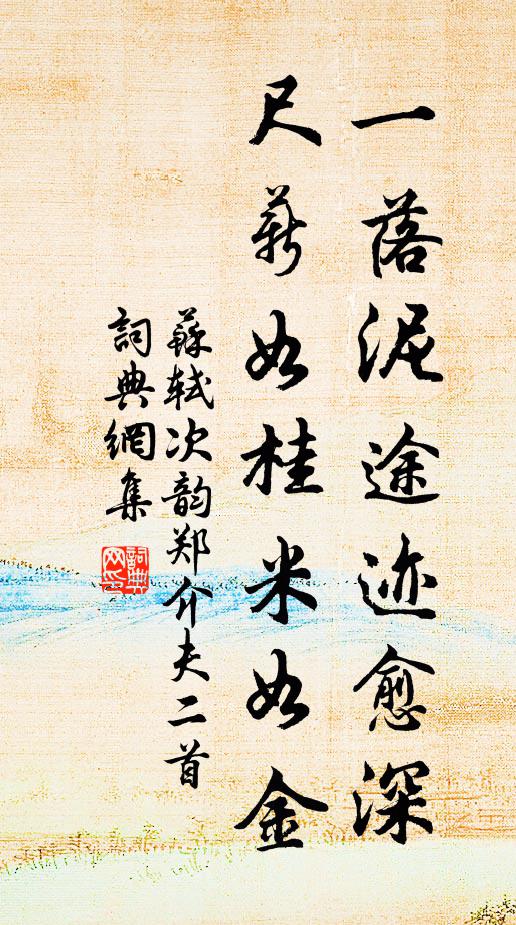 一落泥途迹愈深
尺薪如桂米如金
蘇轼次韵郑介夫二首
詞典網集
詞典网印